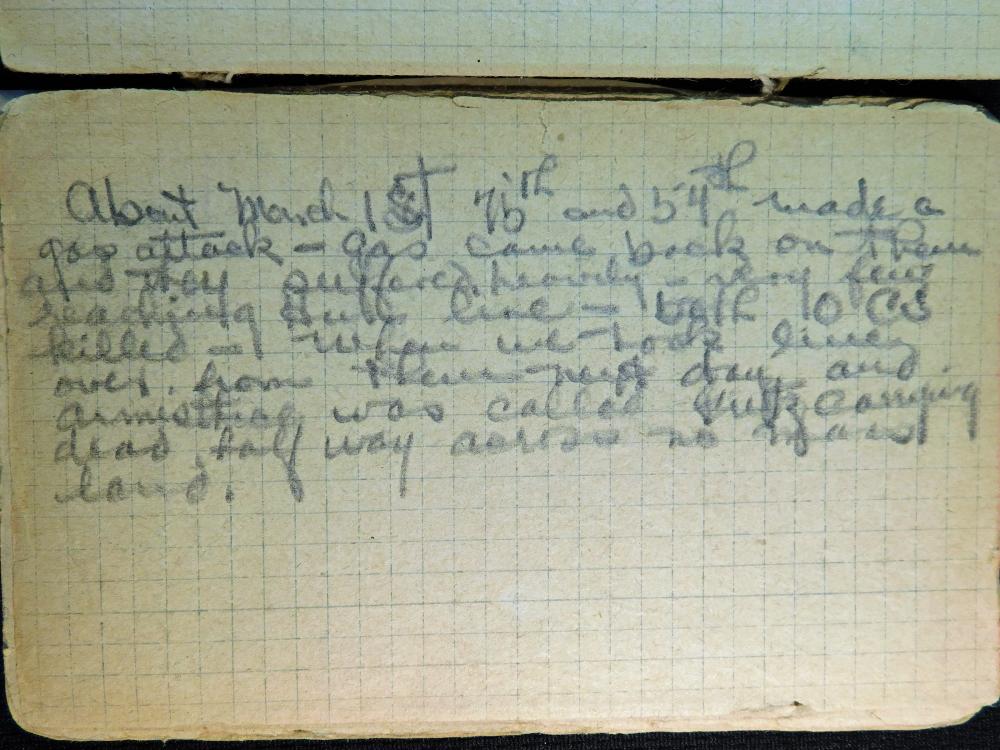 About March 1st 75th and 54th made a
gas attack – gas came back on them
and they suffered heavily – very few
reaching hun line – both O Cs
killed – When we took lines
over from them next day and
armisting was called Fritz carrying
dead half way across no mans
land.